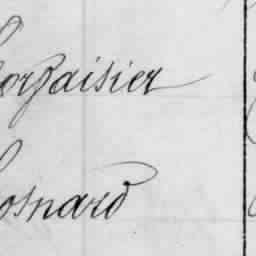 Corzaisier
Cosnard